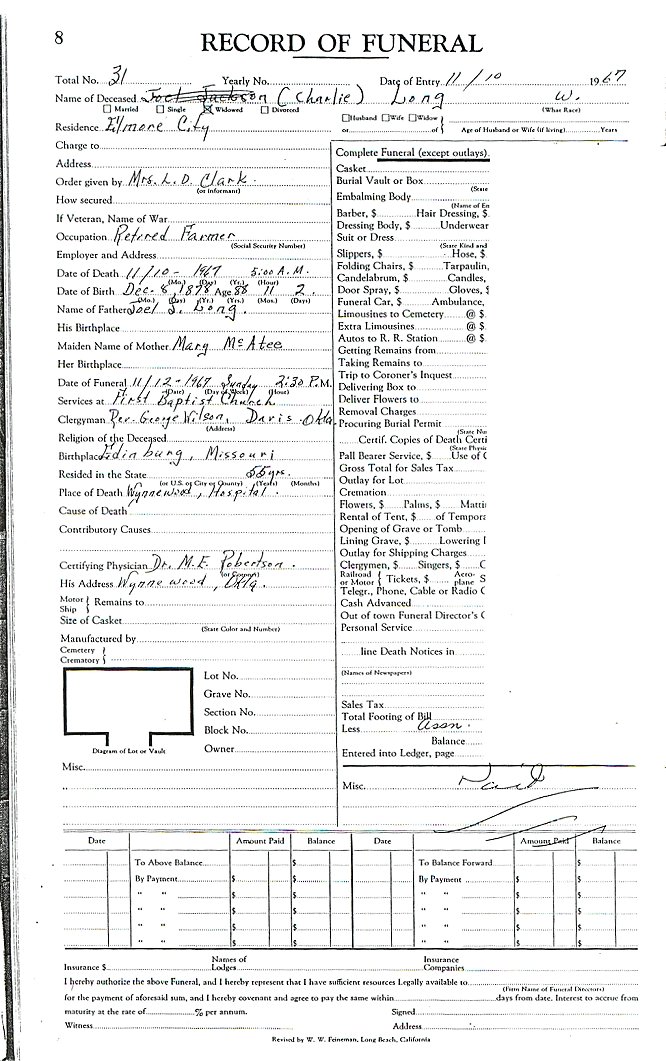 8
RECORD OF FUNERAL
Total No. 31 Yearly No. Date of Entry 11/10 1967
Name of Deceased Joel Jackson (Charlie) Long W.
Married Single Widowed Divorced (What Race)
Husband Wife Widow
Residence Elmore City or of Age of Husband or Wife (if living) Years
Charge to
Address
Order given by Mrs. L. D. Clark.
(or informant)
How secured
If Veteran, Name of War
Occupation Retired Farmer
(Social Security Number)
Employer and Address
Date of Death 11/10- 1967 5:00 A.M.
(Mo.) (Day) (Yr.) (Hour)
Date of Birth Dec. 8, 1878 Age 88 11 2
(Mo.) (Day) (Yr.) (Yrs.) (Mos.) (Days)
Name of Father Joel S. Long.
His Birthplace
Maiden Name of Mother Mary McAtee
Her Birthplace
Date of Funeral 11/12-1967 Sunday 2:30 P.M.
(Date) (Day of Week) (Hour)
Services at First Baptist Church
Clergyman Rev. George Wilson, Davis Okla.
(Address)
Religion of the Deceased
Birthplace Edinburg, Missouri
Resided in the State 55 yrs.
(or U.S. or City or County) (Years) (Months)
Place of Death Wynnewood, Hospital.
Cause of Death
Contributory Causes
Certifying Physician Dr. M.E. Robertson.
(or Coroner)
His Address Wynnewood, Okla
Motor
Ship } Remains to
Size of Casket
(State Color and Number)
Manufactured by
Cemetery
Crematory }
Lot No.
Grave No.
Section No.
Block No.
Owner
Diagram of Lot or Vault
Misc.
Complete Funeral (except outlays).
Casket
Burial Vault or Box
(State
Embalming Body
(Name of Em
Barber, $ Hair Dressing, $
Dressing Body, $ Underwear
Suit or Dress
(State Kind and
Slippers, $ Hose, $
Folding Chairs, $ Tarpaulin,
Candelabrum, $ Candles,
Door Spray, $ Gloves, $
Funeral Car, $ Ambulance,
Limousines to Cemetery @ $
Extra Limousines @ $
Autos to R. R. Station @ $
Getting Remains from
Taking Remains to
Trip to Coroner's Inquest
Delivering Box to
Deliver Flowers to
Removal Charges
Procuring Burial Permit
(State Nu
Certif. Copies of Death Certi
(State Physic
Pall Bearer Service, $ Use of C
Gross Total for Sales Tax
Outlay for Lot
Cremation
Flowers, $ Palms, $ Matti
Rental of Tent, $ of Tempora
Opening of Grave or Tomb
Lining Grave, $ Lowering I
Outlay for Shipping Charges
Clergymen, $ Singers, $ C
Railroad
or Motor } Tickets, $ Aero-
plane S
Telegr., Phone, Cable or Radio C
Cash Advanced
Out of town Funeral Director's C
Personal Service
line Death Notices in
(Names of Newspapers)
Sales Tax
Total Footing of Bill
Less Assn.
Balance
Entered into Ledger, page
Misc. Paid
Date Amount Paid Balance Date Amount Paid Balance
To Above Balance $ To Balance Forward $
By Payment $ $ By Payment $ $
" " $ $ " " $ $
" " $ $ " " $ $
" " $ $ " " $ $
" " $ $ " " $ $
Insurance $ Names of
Lodges Insurance
Companies
I hereby authorize the above Funeral, and I hereby represent that I have sufficient resources Legally available to
(Firm Name of Funeral Directors)
for the payment of aforesaid sum, and I hereby covenant and agree to pay the same within days from date. Interest to accrue from
maturity at the rate of % per annum. Signed
Witness Address
Revised by W. W. Feineman, Long Beach, California